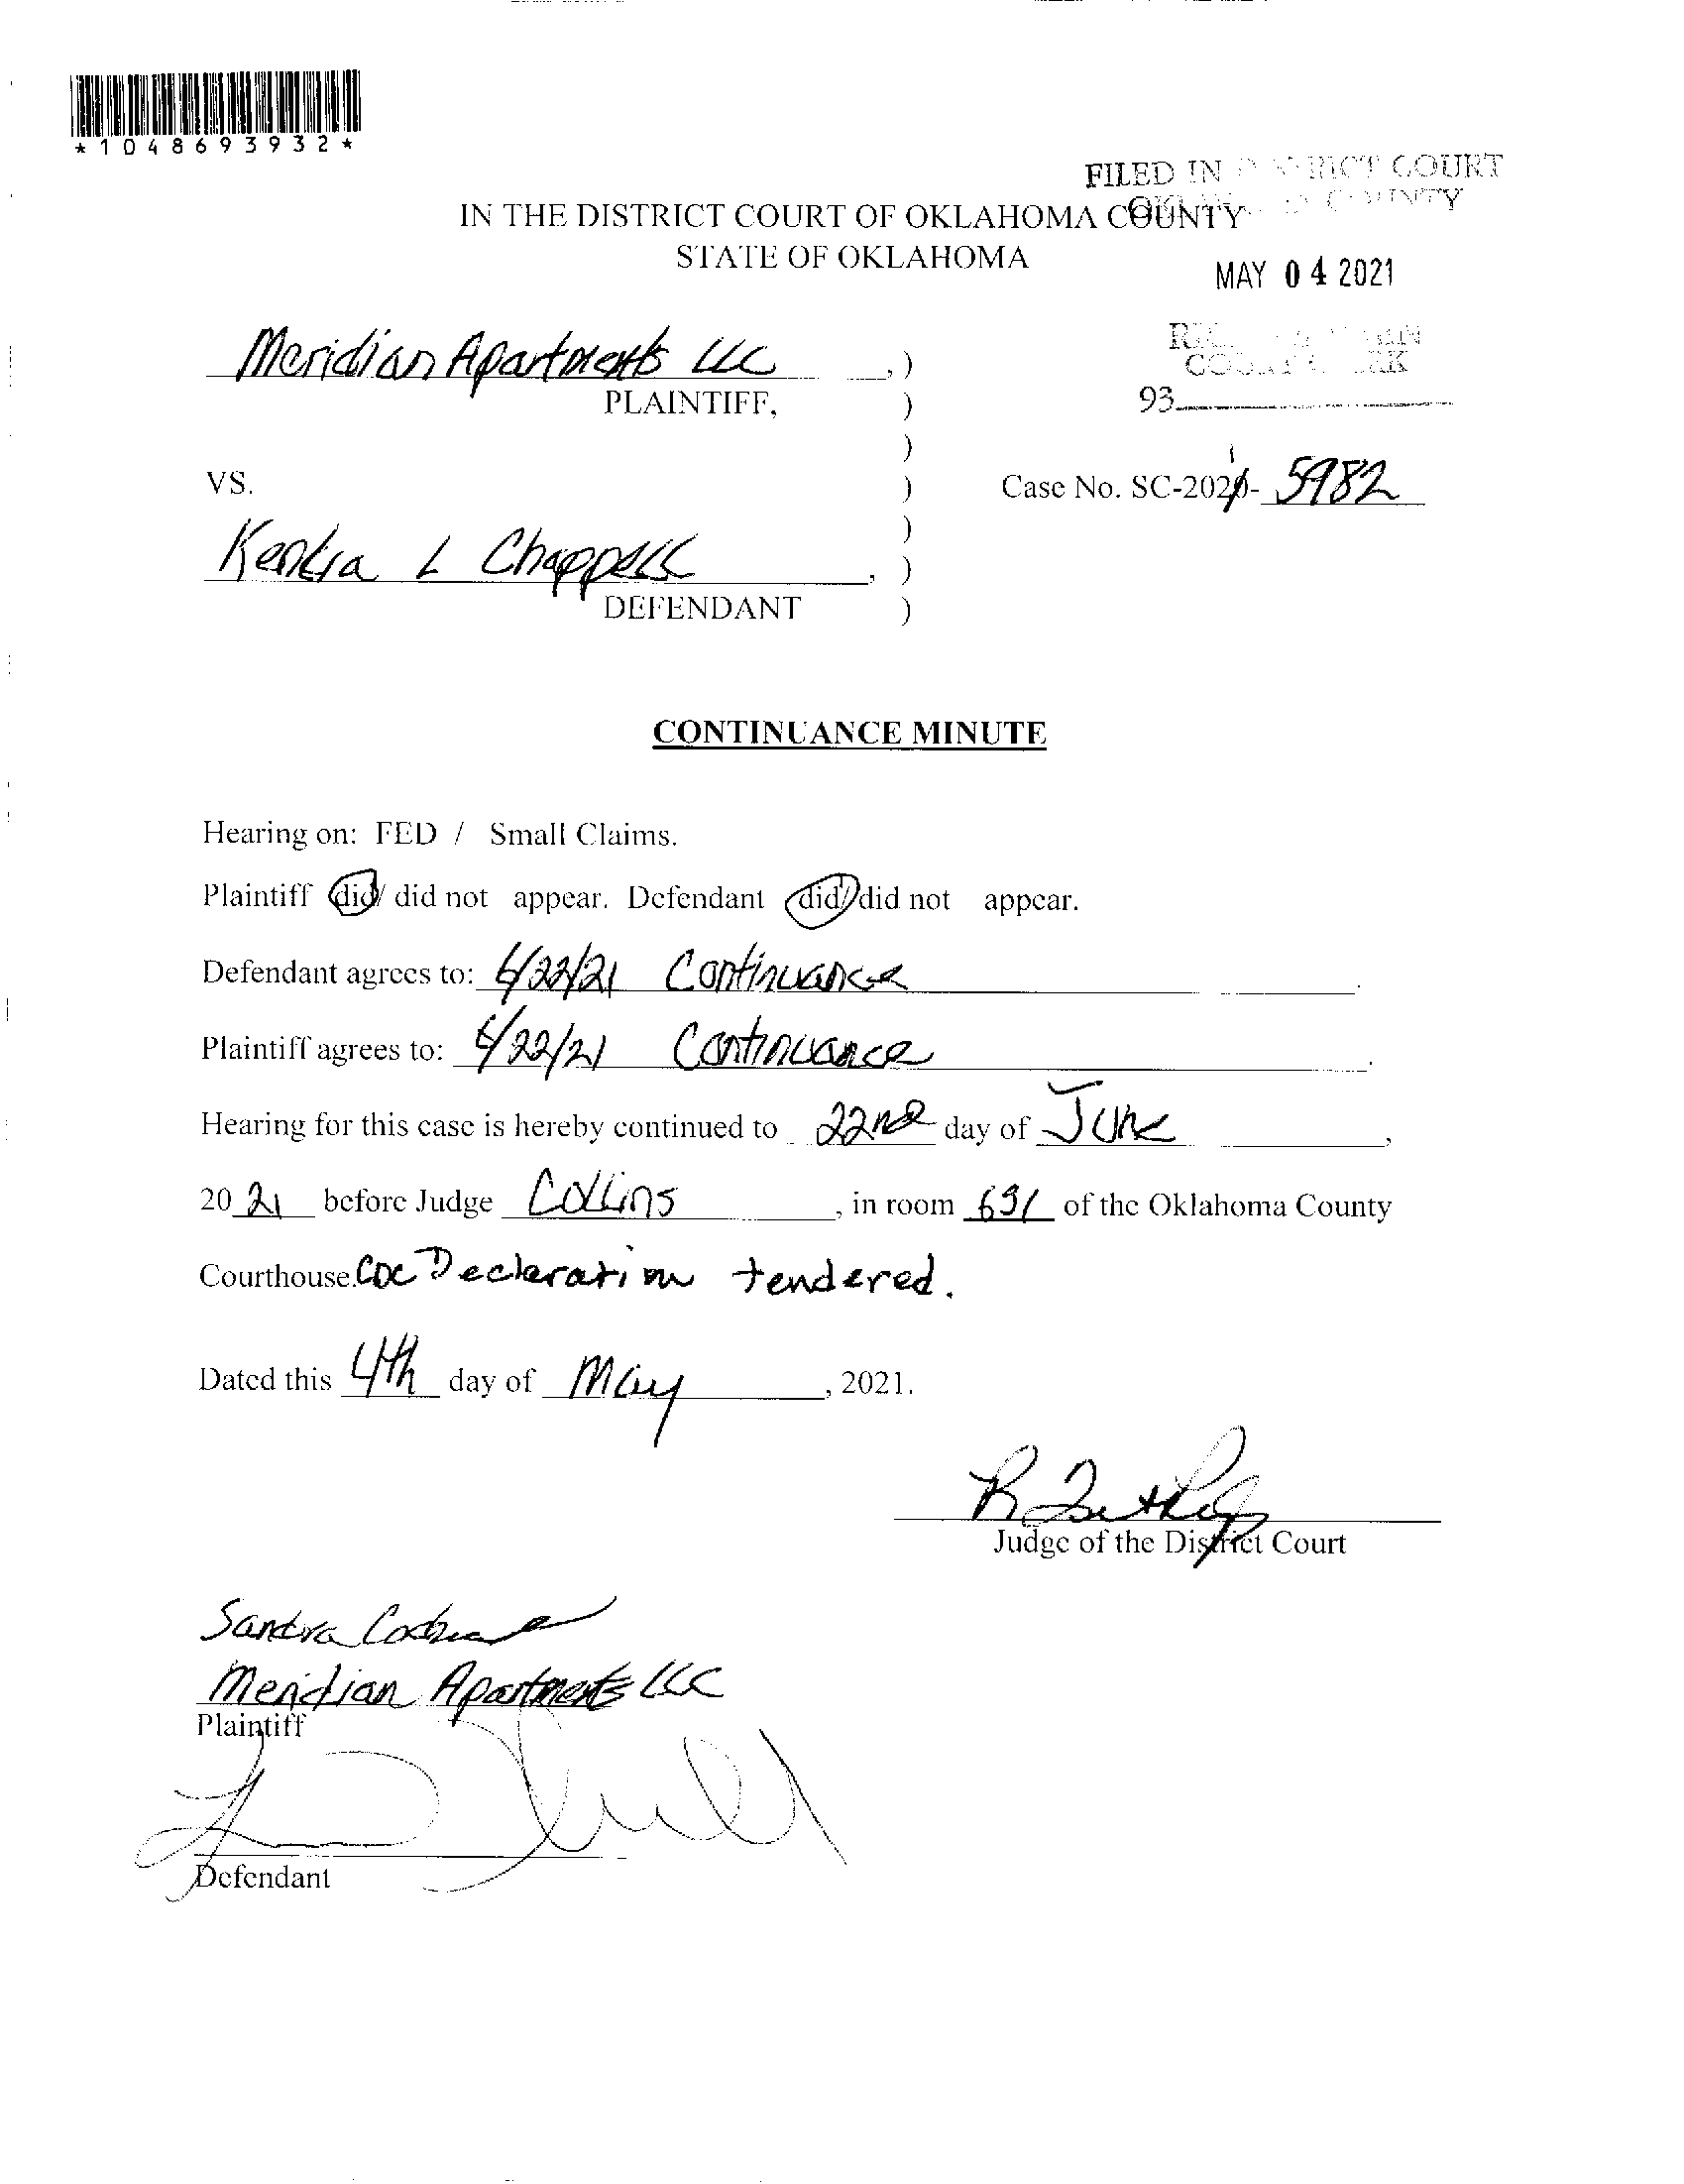 *1048693932*
FILED IN DISTRICT COURT
OKLAHOMA COUNTY
IN THE DISTRICT COURT OF OKLAHOMA COUNTY
STATE OF OKLAHOMA
MAY 04 2021
Meridian Apartments LLC , )
COURT CLERK
PLAINTIFF, )
93
)
VS. )
Case No. SC-2021- 5982
)
Kendra L Chappell , )
DEFENDANT )
CONTINUANCE MINUTE
Hearing on: FED / Small Claims.
Plaintiff did/ did not appear. Defendant did/did not appear.
Defendant agrees to: 6/22/21 Continuance .
Plaintiff agrees to: 6/22/21 Continuance .
Hearing for this case is hereby continued to 22nd day of June ,
20 21 before Judge Collins , in room 631 of the Oklahoma County
Courthouse. CDC Declaration tendered.
Dated this 4th day of May , 2021.
Judge of the District Court
Sandra
Meridian Apartments LLC
Plaintiff
Defendant